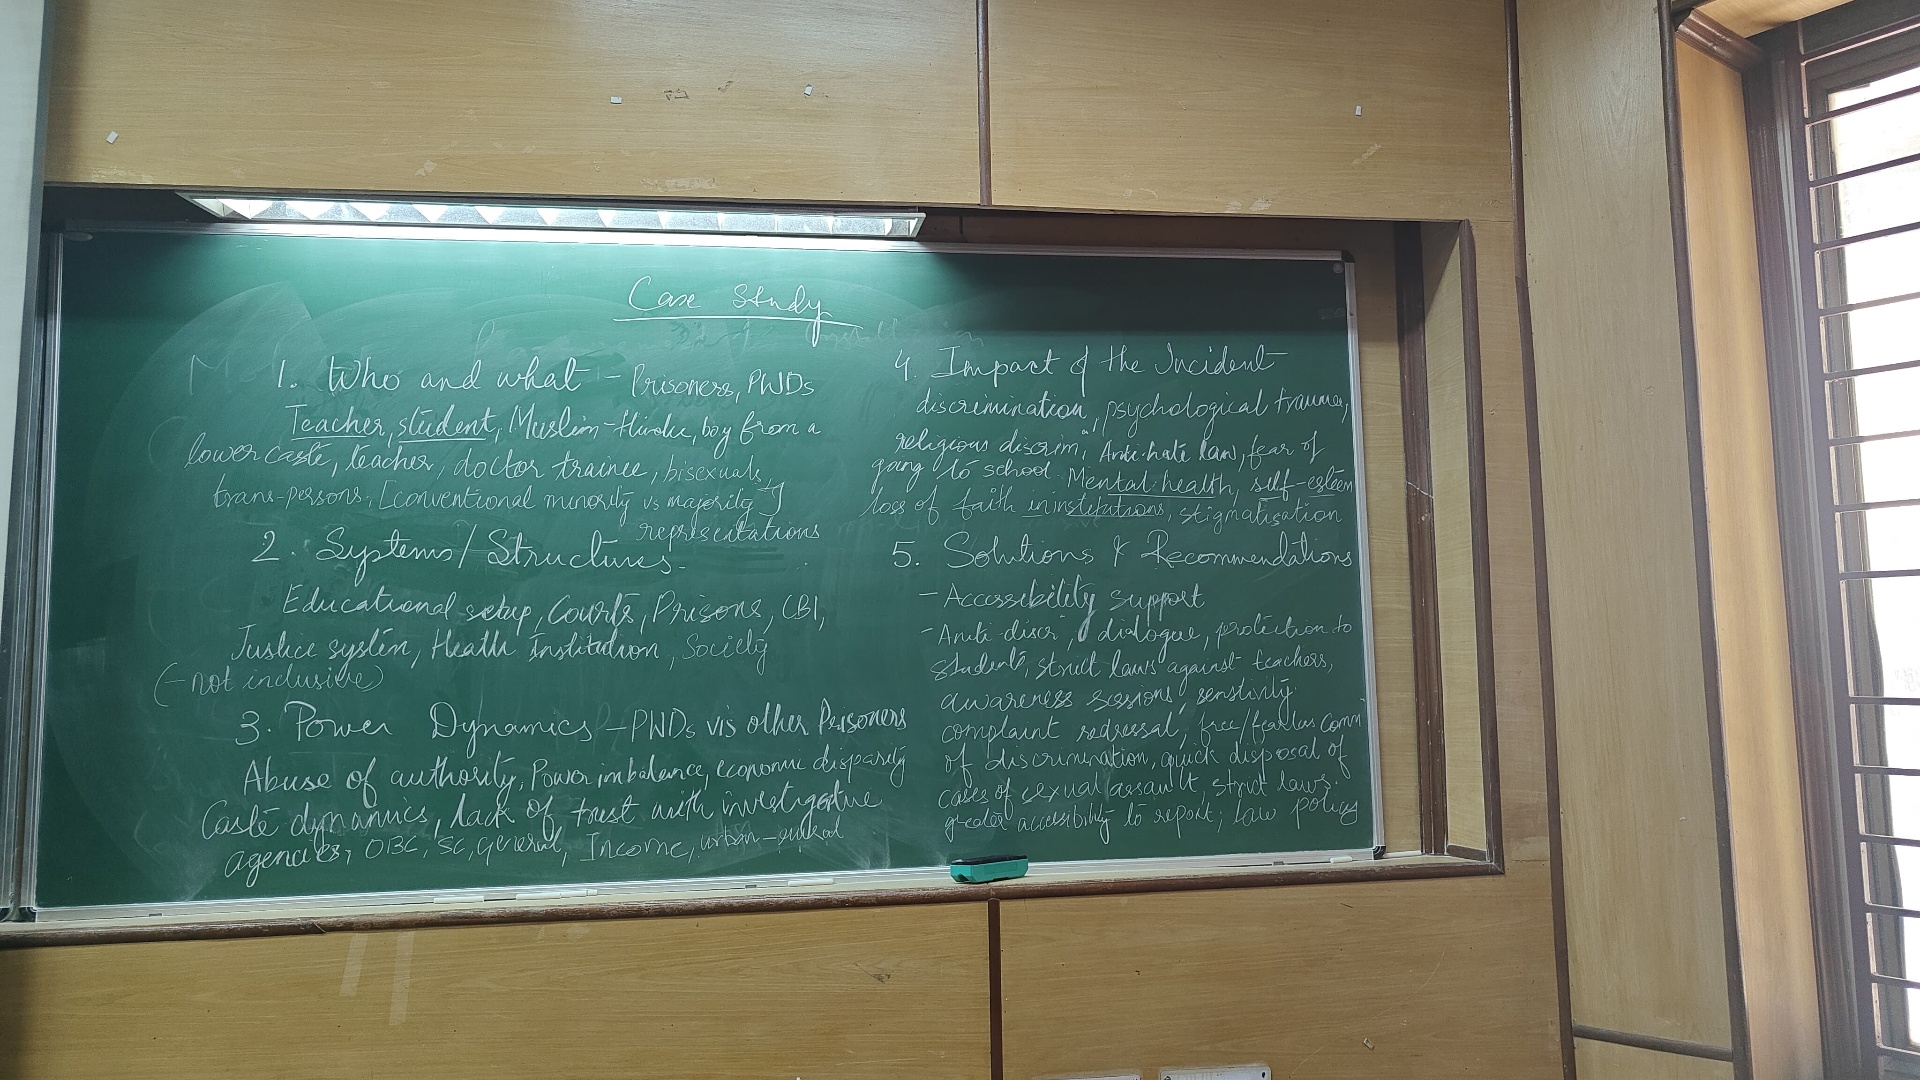 Case Study
1. Who and what - Prisoners, PWDs
Teacher, student, Muslim-Hindu, boy from a
lower caste, teacher, doctor trainee, bisexuals,
trans-persons, [conventional minority vs majority]
representations
2. Systems/Structures.
Educational setup, Courts, Prisons, CBI,
Justice system, Health Institution, Society
(- not inclusive)
3. Power Dynamics - PWDs vis other Prisoners
Abuse of authority, Power imbalance, economic disparity
Caste dynamics, lack of trust with investigative
agencies, OBC, SC, General, Income, urban-rural
4. Impact of the Incident
discrimination, psychological trauma,
religious discrim", Anti-hate law, fear of
going to school. Mental health, self-esteem
loss of faith in institutions, stigmatisation
5. Solutions & Recommendations
- Accessibility support
- Anti-discr", dialogue, protection to
students, strict laws against teachers,
awareness sessions, senstivity
complaint redressal, free/fearless comm"
of discrimination, quick disposal of
cases of sexual assault, strict laws.
greater accessibility to report; law policy